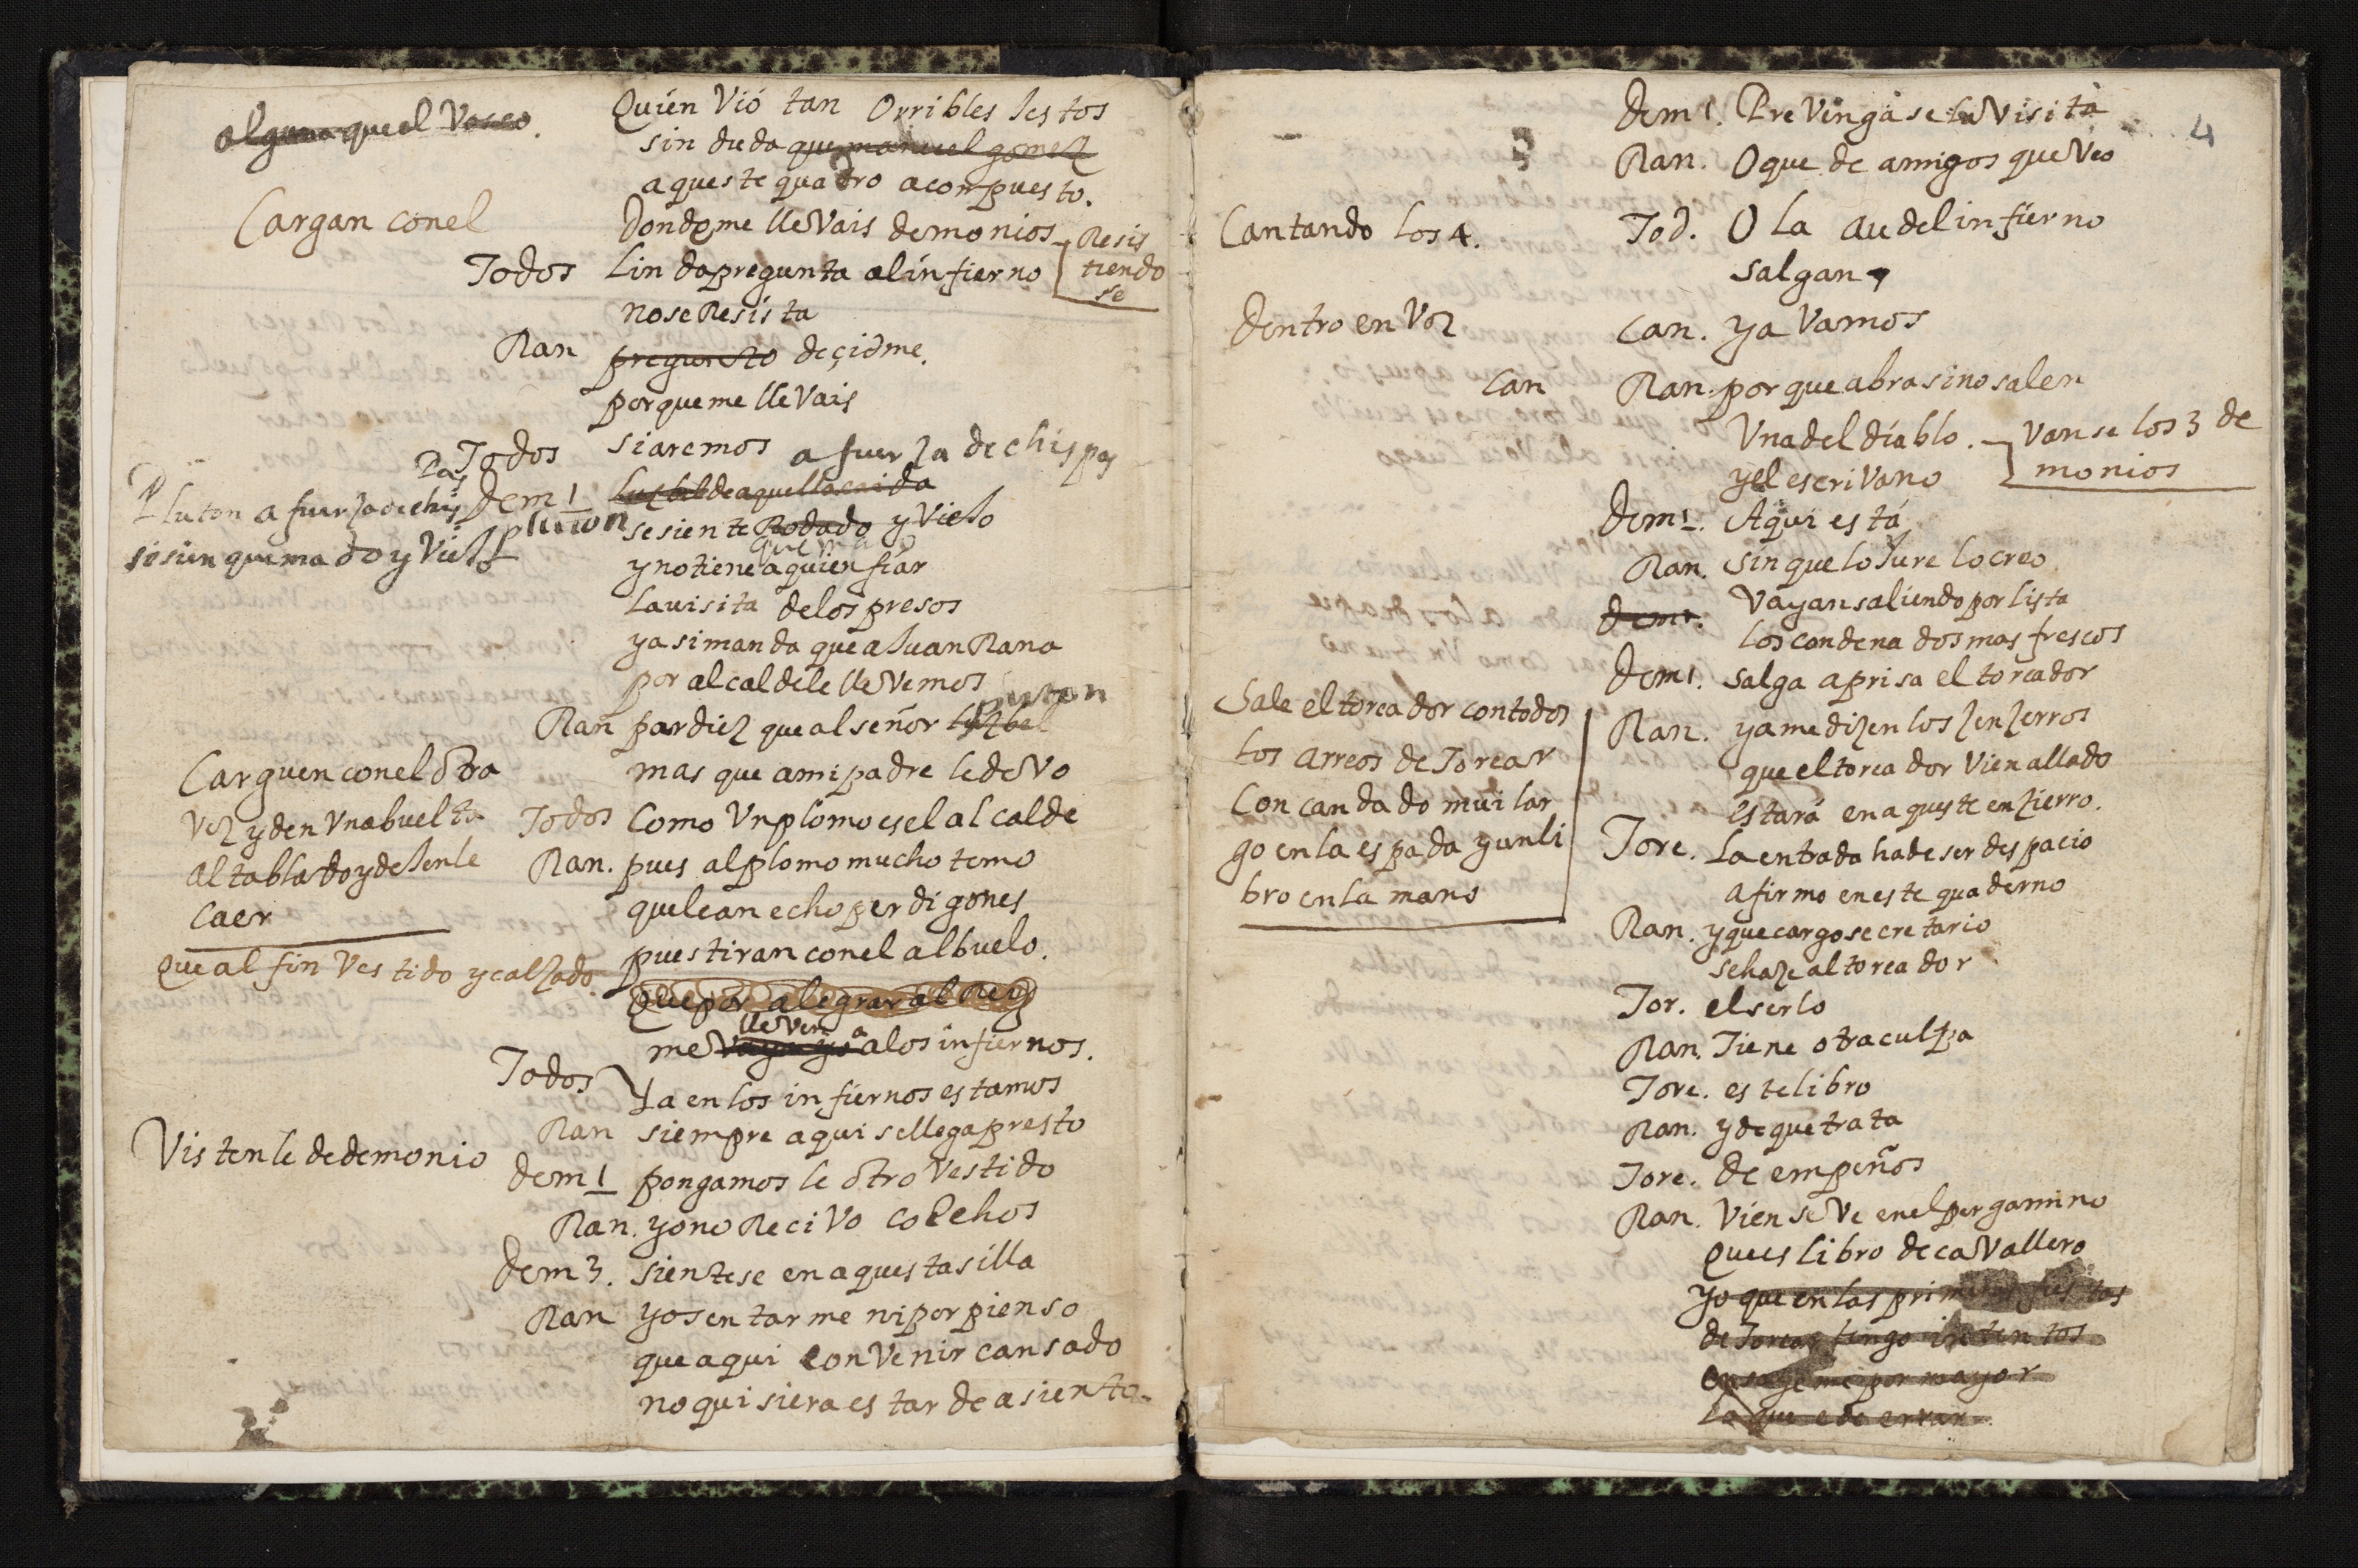 alguno que el Vasco.
Quién Vió tan Orribles jestos
sin duda que manuel gomez
aqueste quatro a compuesto.
Cargan conel
Donde me lleVais demonios
Resis
tiendo
se
Todos Linda pregunta al infierno
no se Resista
Ran pregunto deçidme.
porque me lleVais
Todos si aremos a fuerza de chispas
Pluton a fuerza de chis
pas
se sien quemado y Viejo
Dem 1 de aquella caida
pluton
se siente Rodado y Viejo
quemado
y no tiene a quien fiar
la uisita de los presos
y asi manda que a Juan Rana
por alcalde le lleVemos
Ran pardiez que al señor luzbel
pluton
mas que a mi padre le deVo
Carguen conel otra
Vez y den Vna buelta
al tablado y dejenle
caer
Todos Como Vn plomo es el alcalde
Ran. pues al plomo mucho temo
que le an echo perdigones
pues tiran con el al buelo.
Que al fin Vestido y calzado.
Que por alegrar al Rey
me Vaya yo a los infiernos.
lleVen a
Todos Ya en los infiernos estamos
Ran siempre aqui se llega presto
Vistenle de demonio
Dem 1 pongamos le otro Vestido
Ran. yo no ReciVo coechos
Dem 3. sientese en aquesta silla
Ran yo sentarme ni por pienso
que aqui con Venir cansado
no quisiera estar de asiento.
4
Dem 1. PreVengase la Visita
Ran. O que de amigos que Veo
Cantando los 4.
Tod. O la au del infierno
salgan
Dentro en Voz
Can. ya Vamos
Can
Ran. porque abra si no salen
Vna del diablo.
Vanse los 3 de
monios
y el escriVano
Dem 1. Aqui está
Ran. sin que lo Jure lo creo
Dem 1. Vayan saliendo por lista
los condenados mas frescos
Dem 1. salga aprisa el toreador
Sale el toreador con todos
los arreos de Torear
Con candado mui lar
go en la espada y un li
bro en la mano
Ran. ya me dizen los zenzerros
que el toreador Vien allado
estará en aqueste enzierro.
Tore. La entrada ha de ser despacio
afirmo en este quaderno
Ran. y que cargo secretario
se haze al toreador
Tor. el serlo
Ran. Tiene otra culpa
Tore. este libro
Ran. y de que trata
Tore. de empeños
Ran. Vien se Ve en el pergamino
Que es libro de caVallero
yo que en las primeras fiestas
de Torear tengo intentos
por mayor
la que e de errar